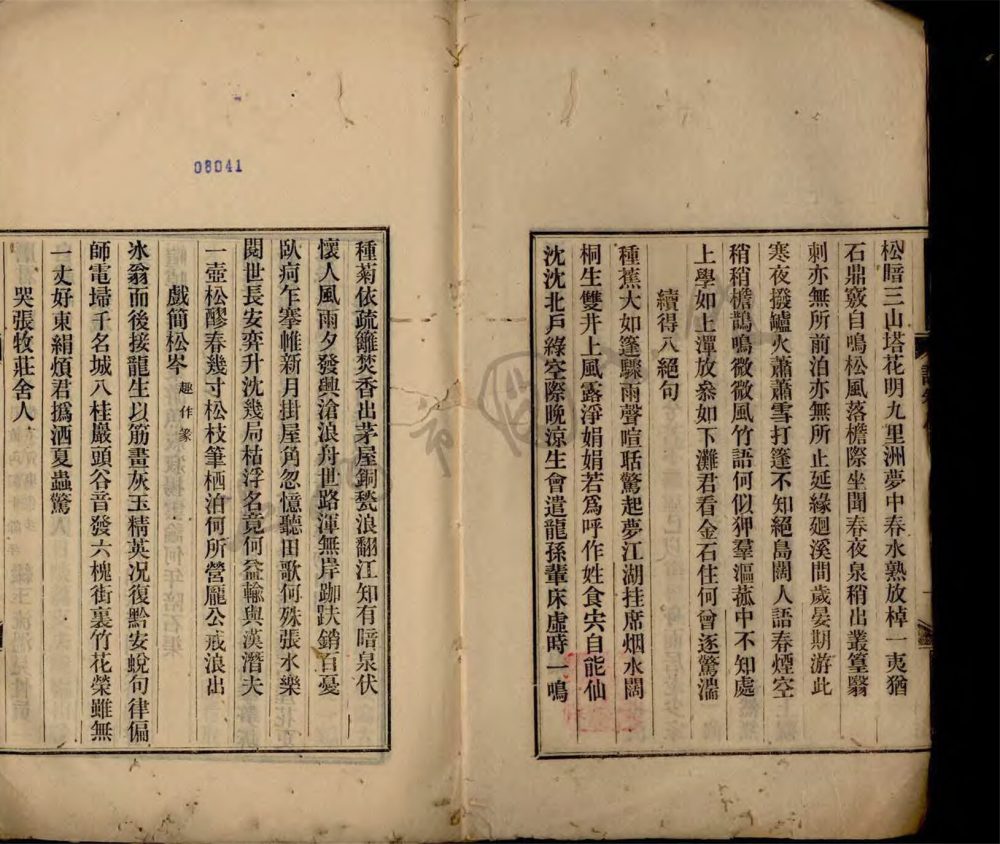 松暗三山塔花明九里洲夢中春水熟放棹一夷猶
石鼎敦自鳴松風落檐際坐聞春夜泉稍出叢篁翳
刺亦無所前泊亦無所止延緣廻溪間歲晏期游此
寒夜撥罏火蕭蕭雪打篷不知絕島闊人語春煙空
稍稍檐鵲鳴微微風竹語何似狎羣漚菰中不知處
上學如上潬放參如下灘君看金石住何曾逐驚湍
續得八絕句
種蕉大如篷驟雨聲喧聒驚起夢江湖挂席烟水闊
桐生雙井上風露淨娟娟若爲呼作姓食宍自能仙
沈沈北戶綠空際晚涼生會遣龍孫輩床虛時一鳴
種菊依疏籬焚香出茅屋銅甃浪翻江知有暗泉伏
懷人風雨夕發興滄浪舟世路渾無岸跏趺銷百憂
臥疴乍搴帷新月掛屋角忽憶聽田歌何殊張水樂
閱世長安弈升沈幾局枯浮名竟何益輸與漢潛夫
一壺松醪春幾寸松枝筆栖泊何所營龐公戒浪出
戲簡松岑 趣作篆
冰翁而後接龍生以筋畫灰玉精英况復黔安蛻句律偏
師電埽千名城八桂巖頭谷音發六槐街裏竹花榮雖無
一丈好東絹煩君撝洒夏蟲驚
哭張牧莊舍人
08041